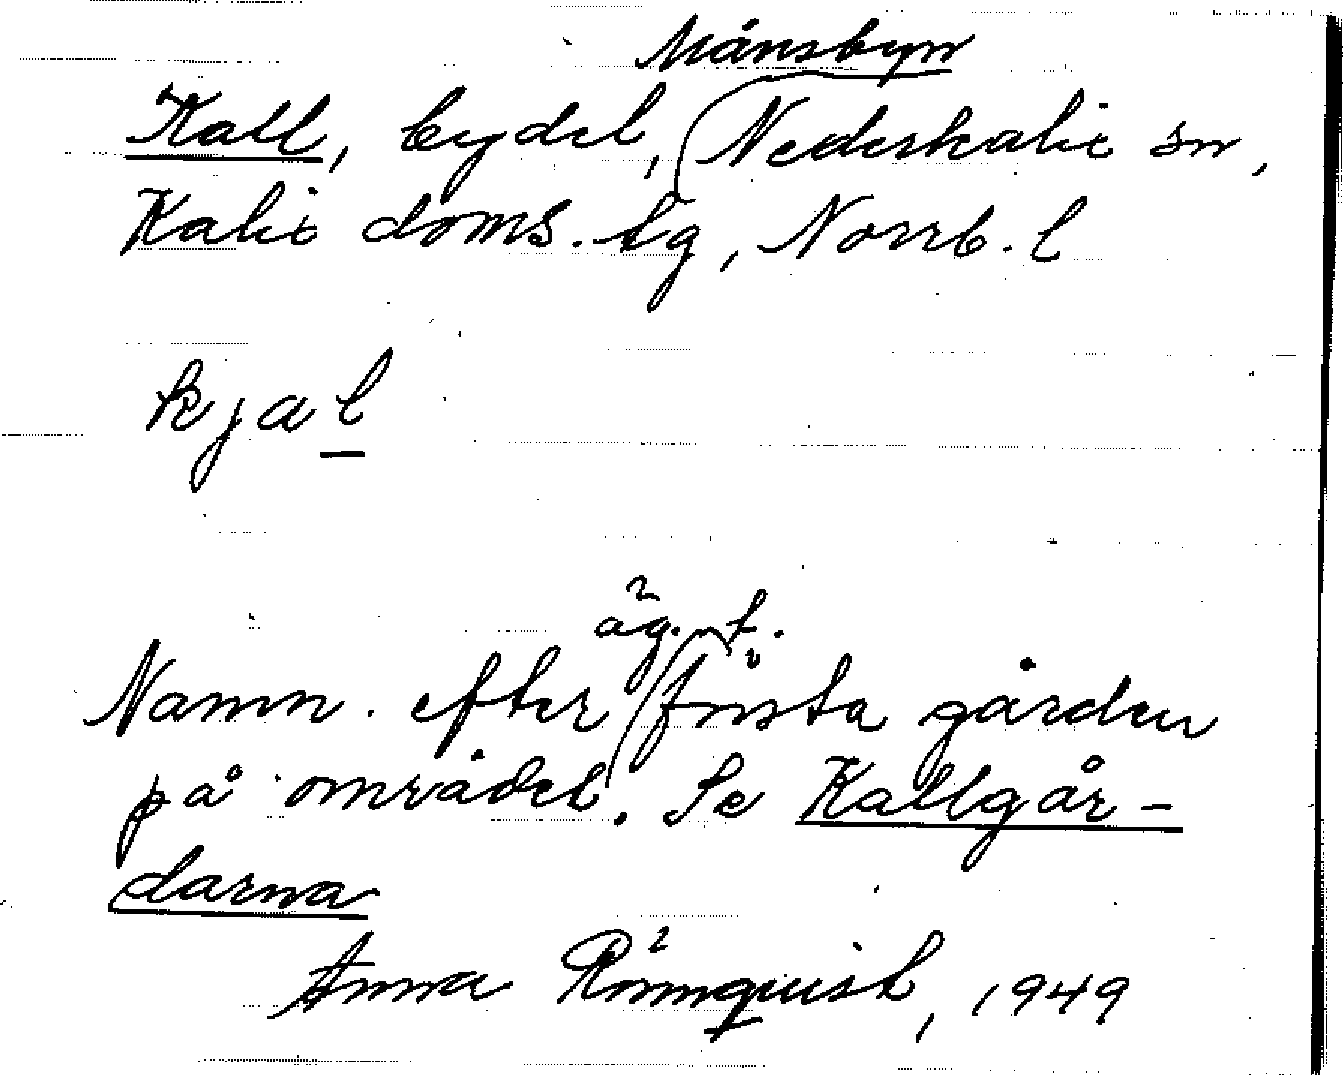 Månsbyn
Kall, bydel, Nederkalix sn,
Kalix doms. lg, Norrb. l
kjal
äg. t.
Namn efter första gården
på området. Se Kallgår-
darna
Anna Rönnquist, 1949